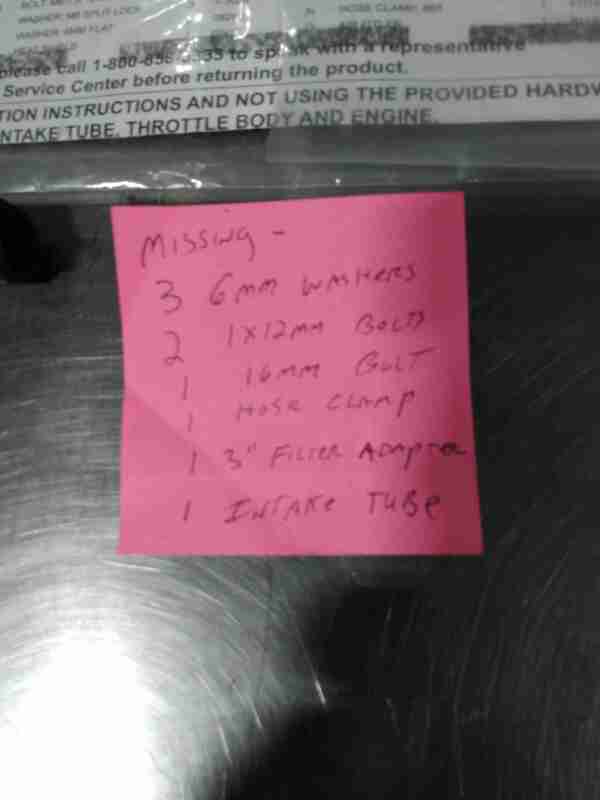 WASHER, M6 SPLIT LOCK
WASHER 6MM FLAT
HOSE CLAMP
please call 1-800-858 to speak with a representative
Service Center before returning the product.
TION INSTRUCTIONS AND NOT USING THE PROVIDED HARDW
NTAKE TUBE, THROTTLE BODY AND ENGINE.
MISSING -
3 6mm WASHERS
2 1x12mm BOLTS
1 16mm BOLT
1 HOSE CLAMP
1 3" FILTER ADAPTER
1 INTAKE TUBE